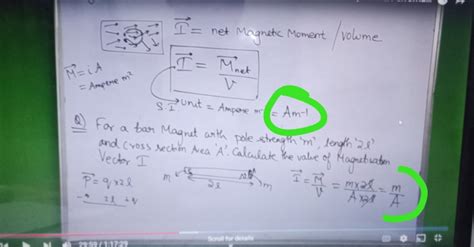 I⃗ = net Magnetic Moment / volume
M⃗ = iA
= Ampere m²
I⃗ = M⃗net / V
S.I unit = Ampere m² = Am-1
Q) For a bar Magnet with pole strength 'm', length '2l'
and cross section Area 'A'. Calculate the value of Magnetisation
Vector I
P⃗ = q x 2l
m 2l m
I⃗ = M⃗/V = m x 2l / A x 2l = m/A
- 2l +q
29:59 / 1:17:29
Scroll for details